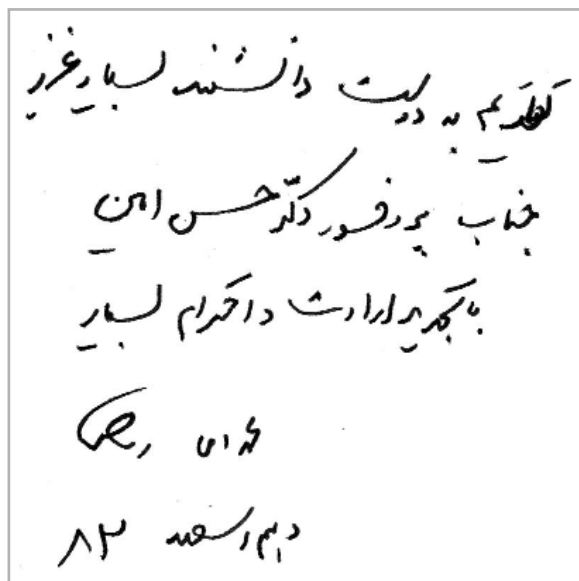 تقدیم به دوست دانشمند بسیار عزیز
جناب پروفسور دکتر حسن امین
با تجدید ارادت و احترام بسیار
محمد امین ریاحی
دهم اسفند ۸۳